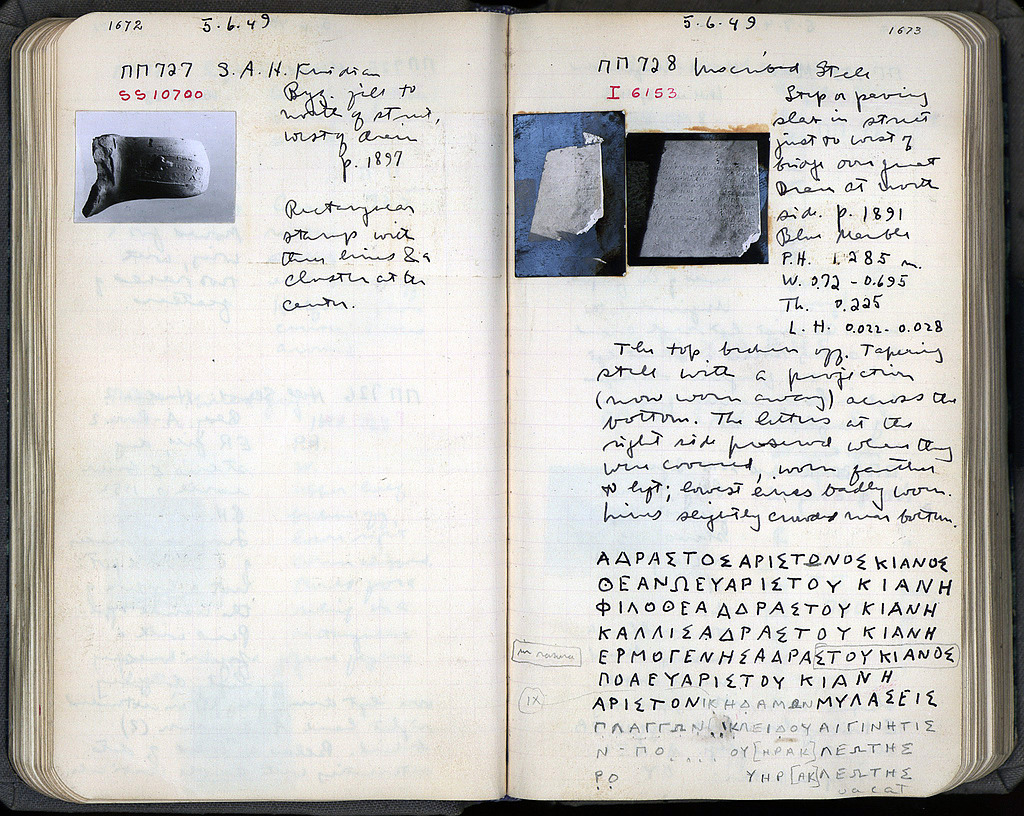 1672 5.6.49
ΠΠ 727 S.A.H. Knidian
SS 10700
Byz. fill to
north of street,
west of drain
p. 1897
Rectangular
stamp with
three lines & a
cluster at the
center.
5.6.49 1673
ΠΠ 728 Inscribed Stele
I 6153
Step or paving
slab in street
just to west of
bridge over great
Drain at north
side. p. 1891
Blue Marble
P.H. 1.285 m.
W. 0.72 - 0.695
Th. 0.225
L.H. 0.022 - 0.028
The top broken off. Tapering
stele with a projection
(now worn away) across the
bottom. The letters at the
right side preserved where they
were covered, worn farther
to left; lowest lines badly worn.
Lines slightly crowded near bottom.
ΑΔΡΑΣΤΟΣΑΡΙΣΤΩΝΟΣ ΚΙΑΝΟΣ
ΘΕΑΝΩΕΥΑΡΙΣΤΟΥ ΚΙΑΝΗ
ΦΙΛΟΘΕΑ ΑΔΡΑΣΤΟΥ ΚΙΑΝΗ
ΚΑΛΛΙΣΑΔΡΑΣΤΟΥ ΚΙΑΝΗ
in rasura ΕΡΜΟΓΕΝΗΣΑΔΡΑΣΤΟΥΚΙΑΝΟΣ
ΠΟΑΕΥΑΡΙΣΤΟΥ ΚΙΑΝΗ
IX ΑΡΙΣΤΟΝΙΚΗΔΑΜΩΝΜΥΛΑΣΕΙΣ
ΠΛΑΓΓΩΝ ΚΛΕΙΔΟΥΑΙΓΙΝΗΤΙΣ
Ν - ΠΟ . . . . ΟΥ[ΗΡΑΚ]ΛΕΩΤΗΣ
ΡΟ ΥΗΡ[ΑΚ]ΛΕΩΤΗΣ
vacat